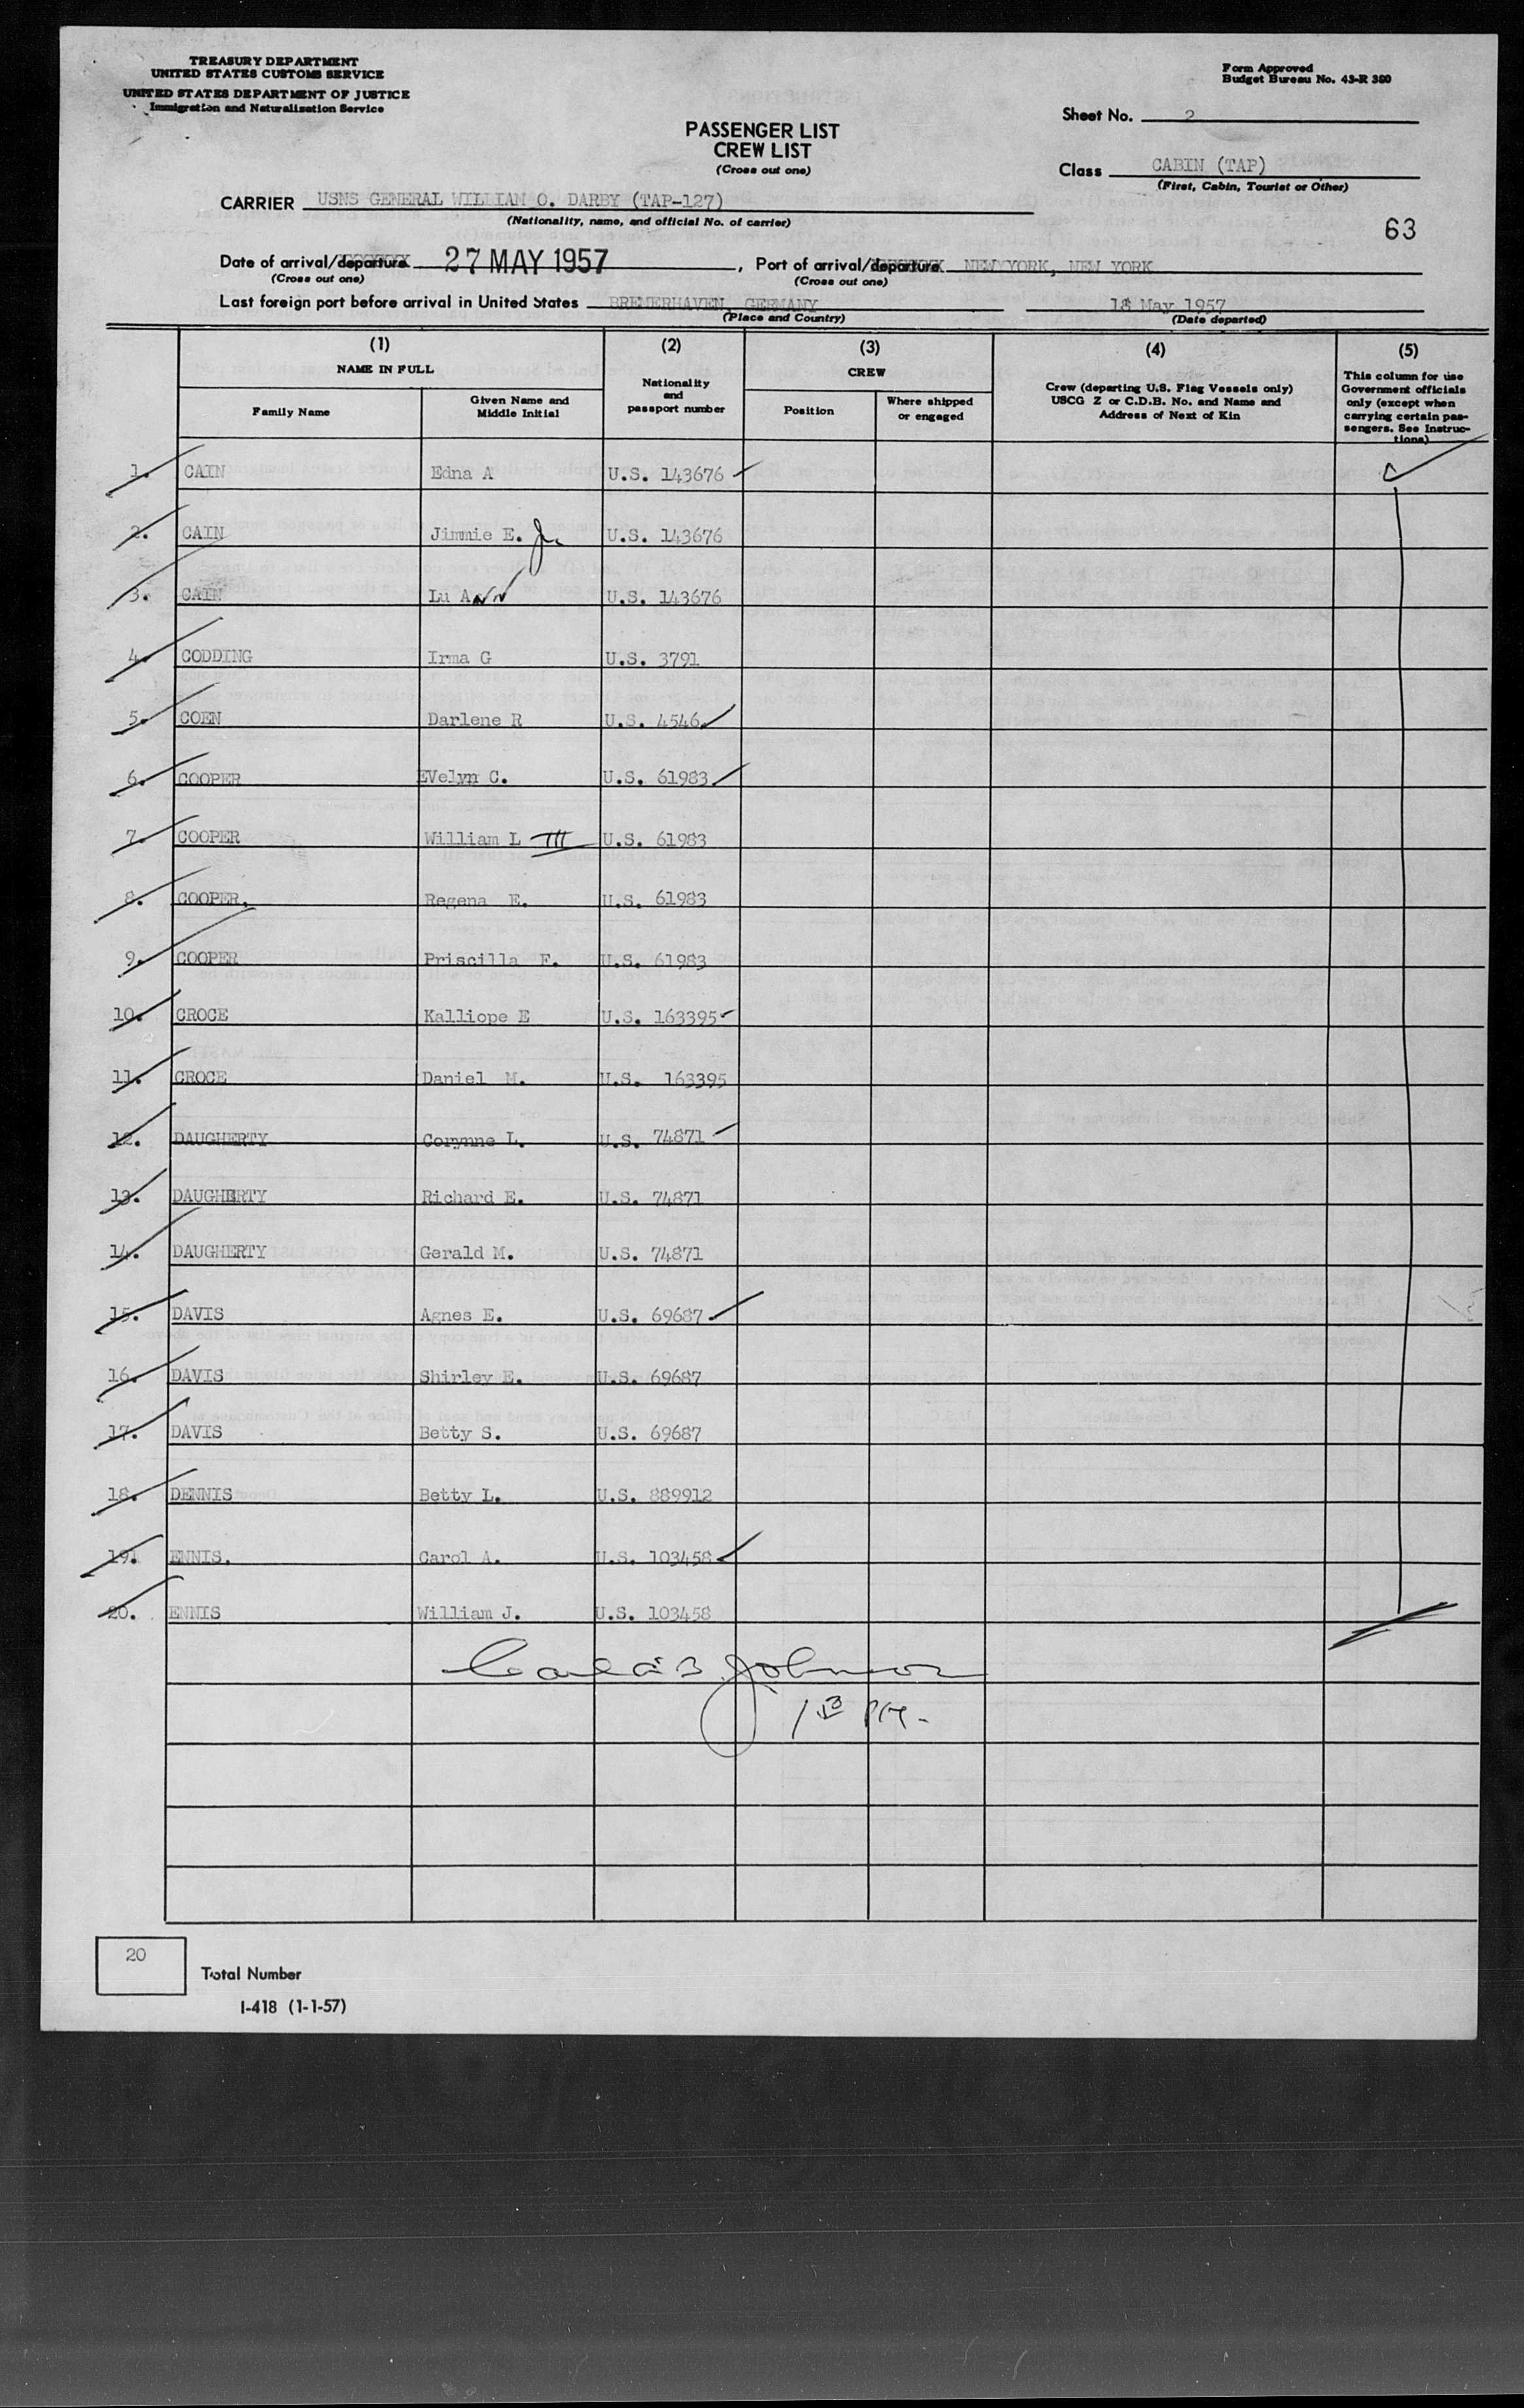 TREASURY DEPARTMENT
UNITED STATES CUSTOMS SERVICE
UNITED STATES DEPARTMENT OF JUSTICE
Immigration and Naturalization Service
Form Approved
Budget Bureau No. 43-R 380
Sheet No. 2
PASSENGER LIST
CREW LIST
(Cross out one)
Class CABIN (TAP)
(First, Cabin, Tourist or Other)
CARRIER USNS GENERAL WILLIAM O. DARBY (TAP-127)
(Nationality, name, and official No. of carrier)
63
Date of arrival/departure 27 MAY 1957, Port of arrival/departure NEW YORK, NEW YORK
(Cross out one) (Cross out one)
Last foreign port before arrival in United States BREMERHAVEN, GERMANY 18 May 1957
(Place and Country) (Date departed)
(1) (2) (3) (4) (5)
NAME IN FULL
Family Name
Given Name and Middle Initial
Nationality and passport number
CREW
Position
Where shipped or engaged
Crew (departing U.S. Flag Vessels only)
USCG Z or C.D.B. No. and Name and
Address of Next of Kin
This column for use
Government officials
only (except when
carrying certain pas-
sengers. See Instruc-
tions)
1. CAIN Edna A U.S. 143676
2. CAIN Jimmie E. Jr U.S. 143676
3. CAIN Lu ANN U.S. 143676
4. CODDING Irma G U.S. 3791
5. COEN Darlene R U.S. 4546
6. COOPER EVelyn C. U.S. 61983
7. COOPER William L III U.S. 61983
8. COOPER. Regena E. U.S. 61983
9. COOPER Priscilla F. U.S. 61983
10. CROCE Kalliope E U.S. 163395
11. CROCE Daniel M. U.S. 163395
12. DAUGHERTY Corynne L. U.S. 74871
13. DAUGHERTY Richard E. U.S. 74871
14. DAUGHERTY Gerald M. U.S. 74871
15. DAVIS Agnes E. U.S. 69687
16. DAVIS Shirley E. U.S. 69687
17. DAVIS Betty S. U.S. 69687
18. DENNIS Betty L. U.S. 889912
19. ENNIS. Carol A. U.S. 103458
20. ENNIS William J. U.S. 103458
Johnson
20
Total Number
I-418 (1-1-57)